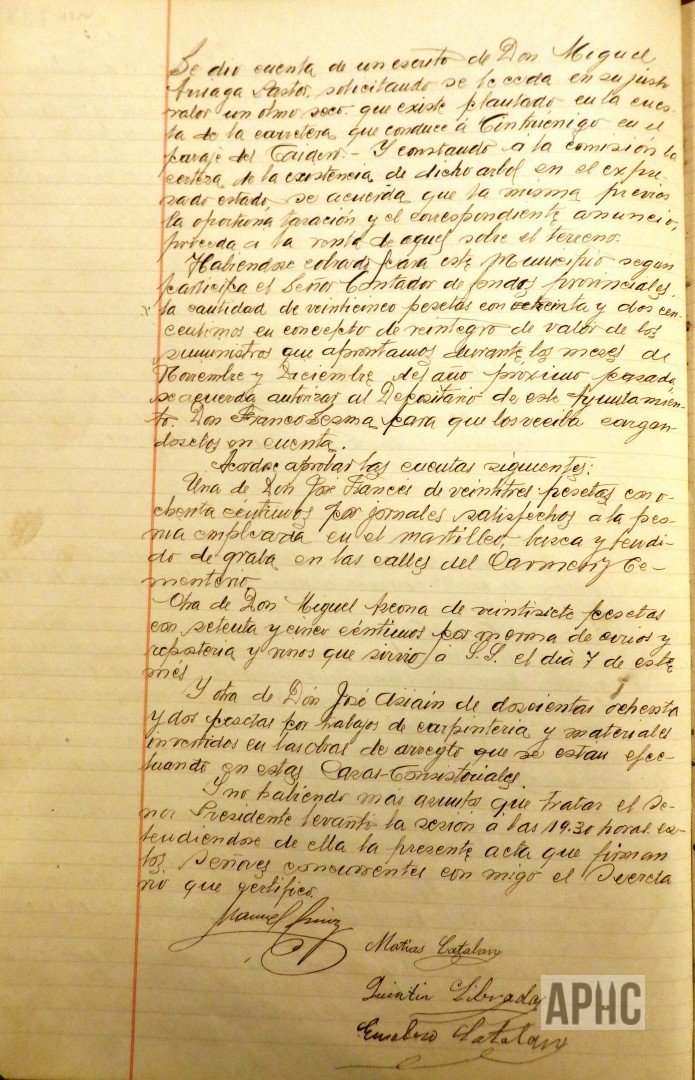 Se dio cuenta de un escrito de Don Miguel
Arriaga Pastor, solicitando se le ceda en su justo
valor un olmo seco que existe plantado en la cues-
ta de la carretera que conduce á Cintruenigo en el
paraje del .- Y constando a la comisión la
certeza de la existencia de dicho arbol en el expre-
sado estado, se acuerda que la misma previos
la oportuna tasación y el correspondiente anuncio,
proceda a la venta de aquel sobre el terreno.
Habiendose cobrado para este Municipio segun
participa el Señor Contador de fondos provinciales,
la cantidad de veinticinco pesetas con y dos cen-
centimos en concepto de reintegro de valor de los
suministros que aprontamos durante los meses de
Noviembre y Diciembre del año próximo pasado,
se acuerda autorizar al Depositario de este Ayuntamien-
to Don Franco Lesma para que los reciba cargan-
doselos en cuenta.
Acordose aprobar las cuentas siguientes:
Una de Don José Francés de veintitres pesetas con o-
chenta céntimos por jornales satisfechos a la per-
sona empleada en el martilleo, busca y tendi-
do de graba en las calles del Carmen y Ce-
menterio.
Otra de Don Miguel Ascona de veintisiete pesetas
con setenta y cinco céntimos por merma de cirios y
reposteria y vinos que sirvio á S.S. el dia 7 de este
més
Y otra de Don José Asiain de doscientas ochenta
y dos pesetas por trabajos de carpinteria y materiales
invertidos en las obras de arreglo que se estan efec-
tuando en estas Casas-Consistoriales.
Y no habiendo mas asunto que tratar el Se-
ñor Presidente levantó la sesión a las 19.30 horas ex-
tendiendose de ella la presente acta que firman
los Señores concurrentes con migo el Secreta
rio que certifico.
Manuel
Matias Catalan
Quintin Librada
Eusebio Catalan
APHC